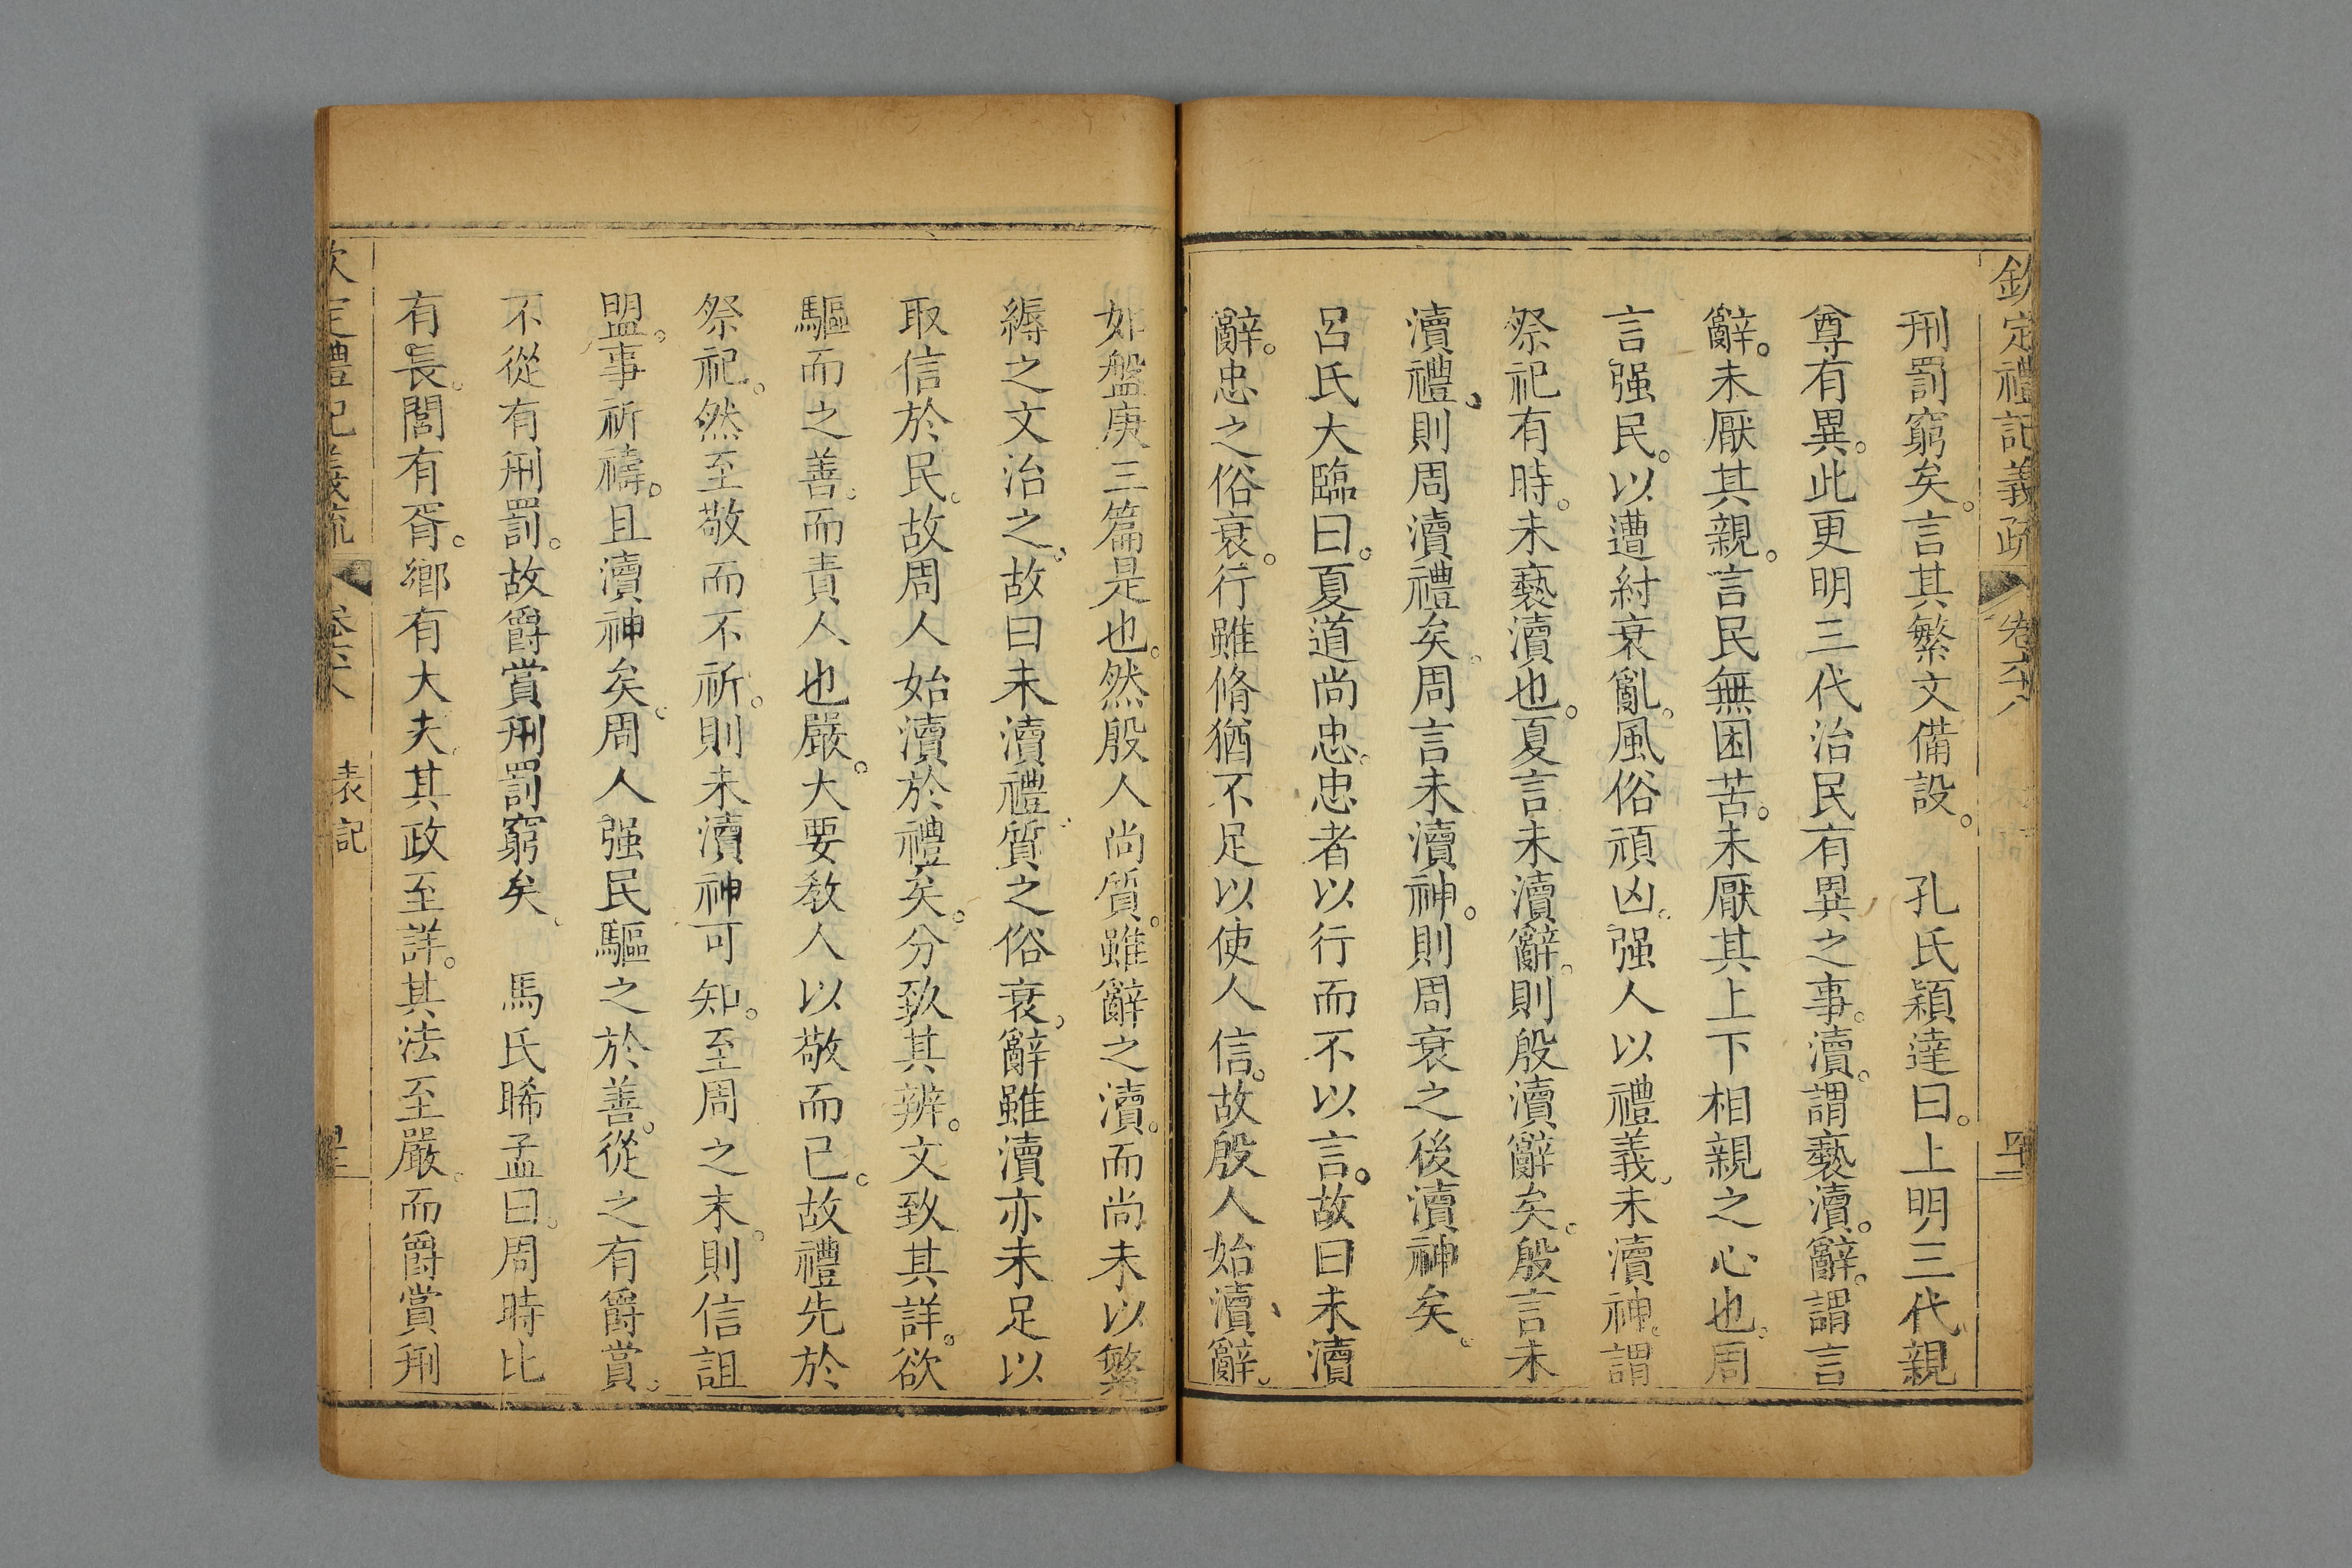 欽定禮記義疏 卷六十八
刑罰窮矣。言其繁文備設。 孔氏穎達曰。上明三代親
尊有異。此更明三代治民有異之事。瀆。謂褻瀆。辭。謂言
辭。未厭其親。言民無困苦。未厭其上下相親之心也。周
言强民。以遭紂衰亂。風俗頑凶。强人以禮義。未瀆神。謂
祭祀有時。未褻瀆也。夏言未瀆辭。則殷瀆辭矣。殷言未
瀆禮。則周瀆禮矣。周言未瀆神。則周衰之後瀆神矣。
呂氏大臨曰。夏道尚忠。忠者以行而不以言。故曰未瀆
辭。忠之俗衰。行雖脩猶不足以使人信。故殷人始瀆辭。
如盤庚三篇是也。然殷人尚質。雖辭之瀆。而尚未以繁
縟之文治之。故曰未瀆禮。質之俗衰。辭雖瀆亦未足以
取信於民。故周人始瀆於禮矣。分致其辨。文致其詳。欲
驅而之善。而責人也嚴。大要敎人以敬而已。故禮先於
祭祀。然至敬而不祈。則未瀆神可知。至周之末。則信詛
盟。事祈禱。且瀆神矣。周人强民驅之於善。從之有爵賞。
不從有刑罰。故爵賞刑罰窮矣。 馬氏睎孟曰。周時比
有長。閭有胥。鄉有大夫。其政至詳。其法至嚴。而爵賞刑
欽定禮記義疏 卷六十八 表記